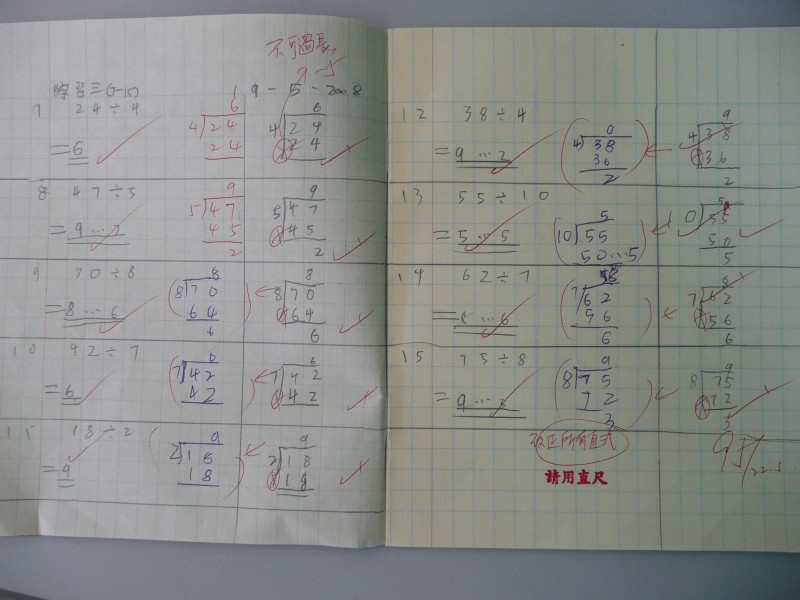 不可過長
-5
練習三(7-15)
9-5-2008
7 24÷4
=6
6
4 24
24
6
4 24
24
8 47÷5
=9...2
9
5 47
45
2
9
5 47
45
2
9 70÷8
=8...6
8
8 70
64
6
8
8 70
64
6
10 42÷7
=6
6
7 42
42
6
7 42
42
18÷2
=9
9
2 18
18
9
2 18
18
12 38÷4
=9...2
4 38
36
2
9
4 38
36
2
13 55÷10
=5...5
5
10 55
50...5
5
10 55
50
5
14 62÷7
=8...6
8
7 62
56
6
8
7 62
56
6
15 75÷8
=9...
9
8 75
72
3
9
8 75
72
3
改正所有直式
95/
22-5
請用直尺